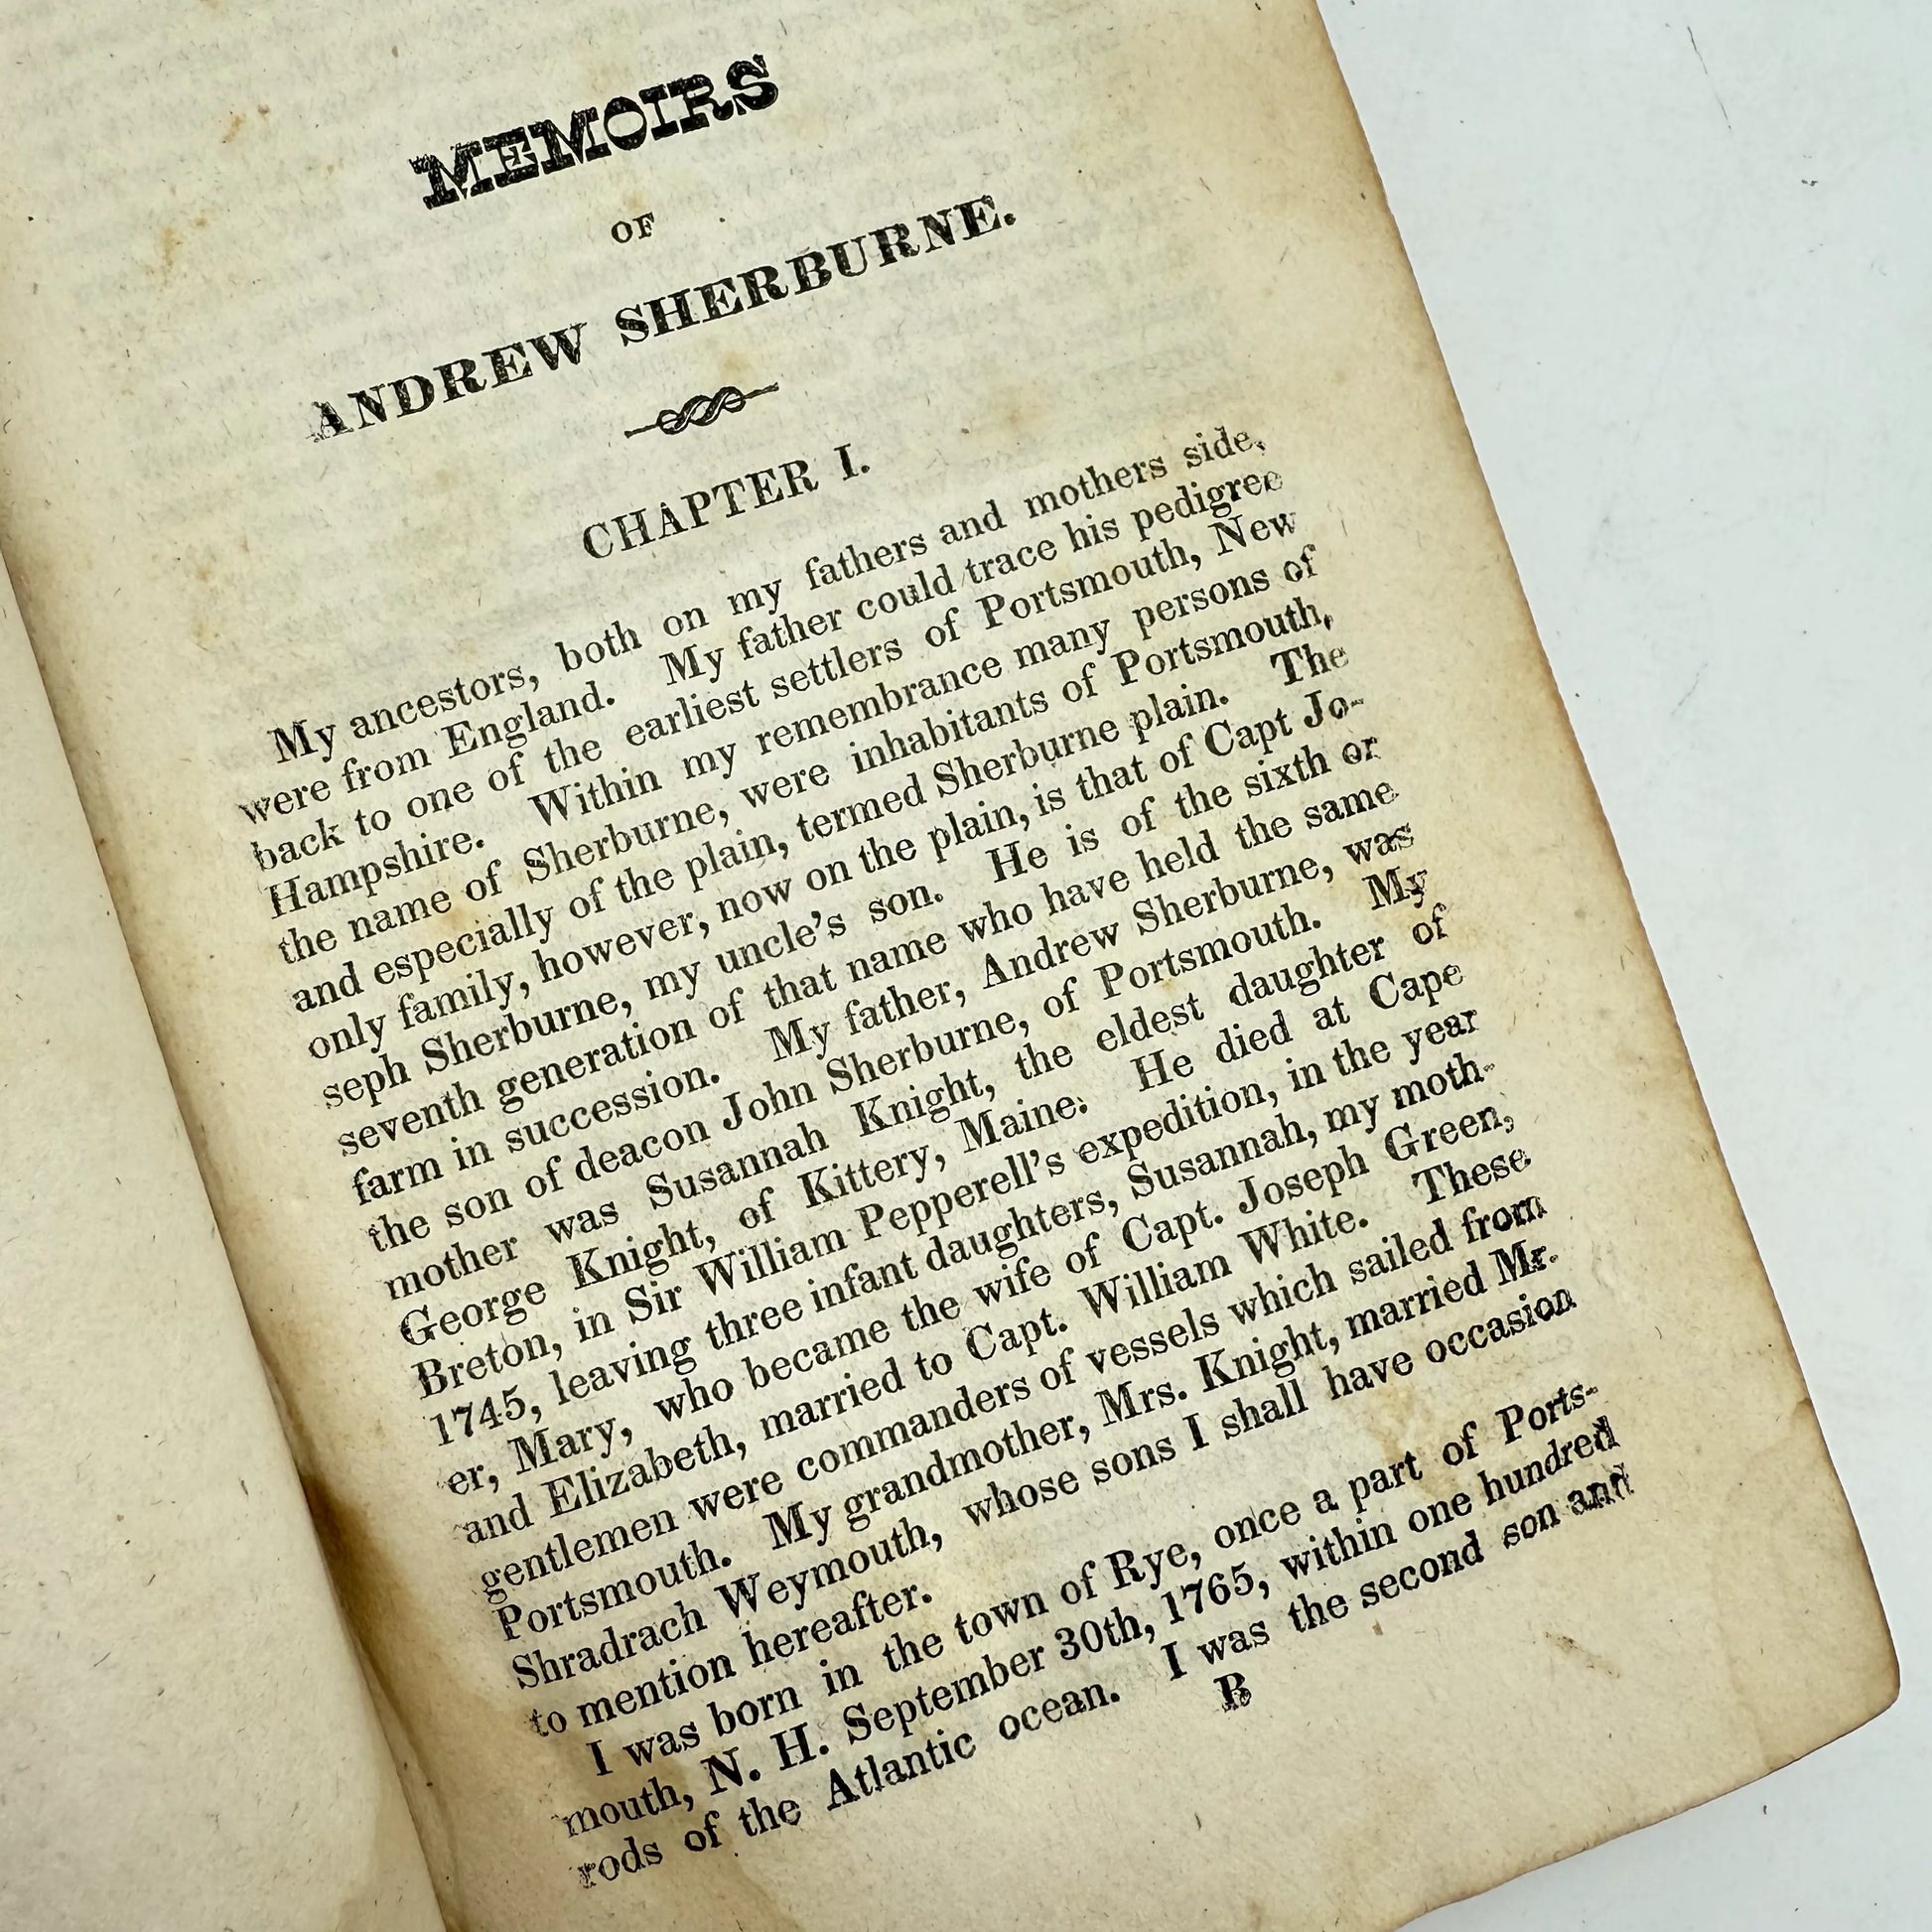 MEMOIRS
OF
ANDREW SHERBURNE.
CHAPTER I.
My ancestors, both on my fathers and mothers side,
were from England. My father could trace his pedigree
back to one of the earliest settlers of Portsmouth, New
Hampshire. Within my remembrance many persons of
the name of Sherburne, were inhabitants of Portsmouth,
and especially of the plain, termed Sherburne plain. The
only family, however, now on the plain, is that of Capt Jo-
seph Sherburne, my uncle's son. He is of the sixth or
seventh generation of that name who have held the same
farm in succession. My father, Andrew Sherburne, was
the son of deacon John Sherburne, of Portsmouth. My
mother was Susannah Knight, the eldest daughter of
George Knight, of Kittery, Maine. He died at Cape
Breton, in Sir William Pepperell's expedition, in the year
1745, leaving three infant daughters, Susannah, my moth-
er, Mary, who became the wife of Capt. Joseph Green,
and Elizabeth, married to Capt. William White. These
gentlemen were commanders of vessels which sailed from
Portsmouth. My grandmother, Mrs. Knight, married Mr.
Shradrach Weymouth, whose sons I shall have occasion
to mention hereafter.
I was born in the town of Rye, once a part of Ports-
mouth, N. H. September 30th, 1765, within one hundred
rods of the Atlantic ocean. I was the second son and
B